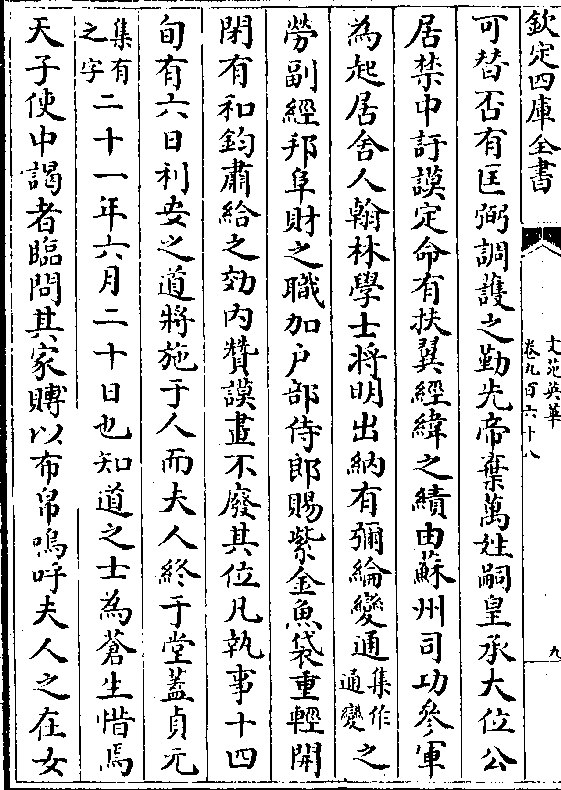 欽定四庫全書
文苑英華
卷九百六十八
九
可替否有匡弼調護之勤先帝棄萬姓嗣皇承大位公
居禁中訏謨定命有扶翼經緯之績由蘇州司功參軍
為起居舍人翰林學士將明出納有彌綸變通集作通變之
勞副經邦阜財之職加户部侍郎賜紫金魚袋重輕開
閉有和鈞肅給之効内贊謨畫不廢其位凡執事十四
旬有六日利安之道將施于人而夫人終于堂蓋貞元
集有之字二十一年六月二十日也知道之士為蒼生惜焉
天子使中謁者臨問其家賻以布帛嗚呼夫人之在女